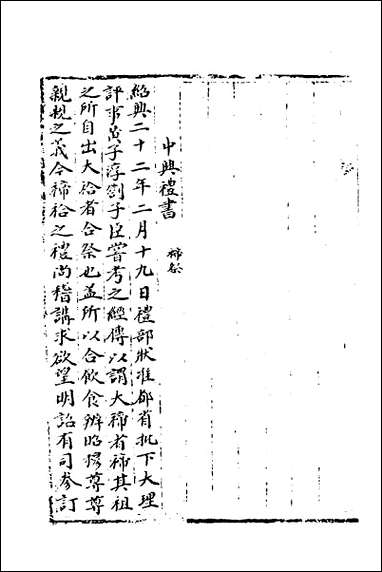 中興禮書
禘祭
紹興二十二年二月十九日禮部狀准都省批下大理
評事黃子淳劄子臣嘗考之經傳以謂大禘者禘其祖
之所自出大祫者合祭也盖所以合飲食辨昭穆尊尊
親親之義今禘祫之禮尚稽講求欲望明詔有司參訂